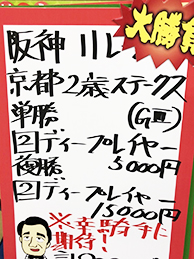 大勝負
阪神11レ
京都2歳ステークス
単勝 (GⅢ)
2ディープレイヤー
5000円
複勝
2ディープレイヤー
15000円
※幸騎手に
期待!